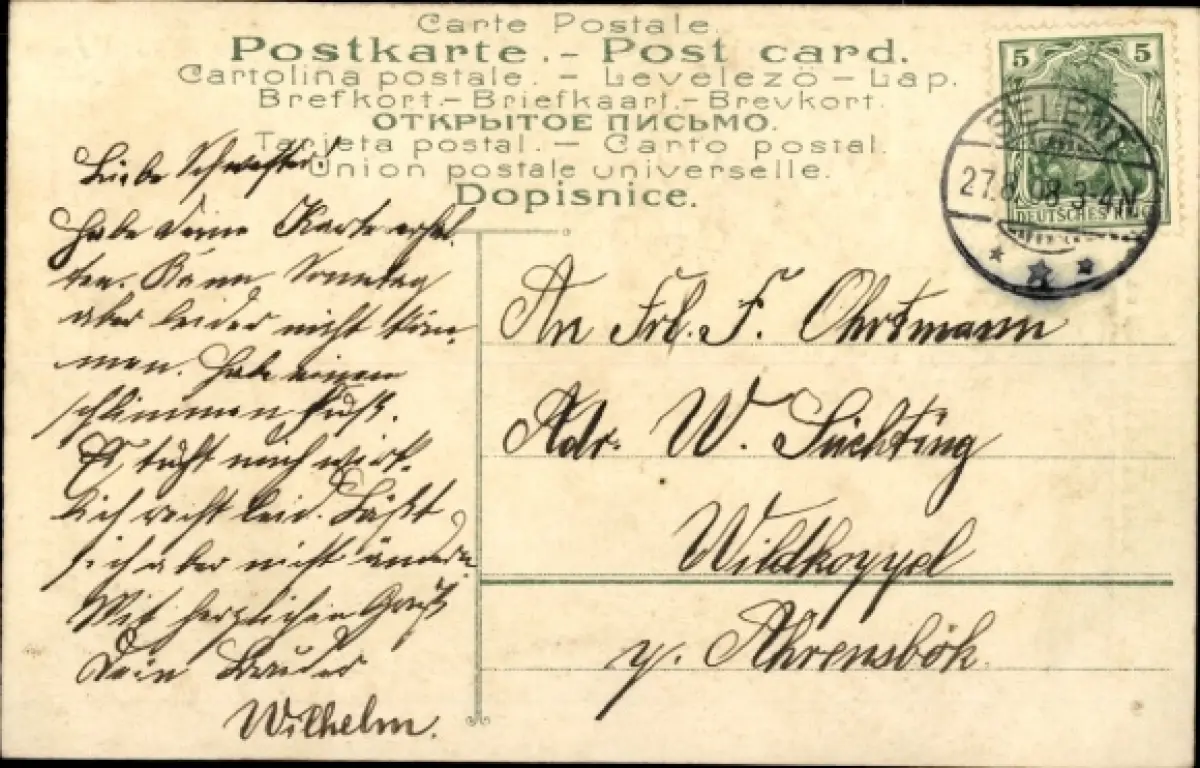 Carte Postale.
Postkarte. - Post card.
Cartolina postale. - Levelező - Lap.
Brefkort. - Briefkaart. - Brevkort.
ОТКРЫТОЕ ПИСЬМО.
Tarjeta postal. - Carto postal.
Union postale universelle.
Dopisnice.
5 5
DEUTSCHES REICH
SELENT
27.8.08 3-4N
Liebe Schwester!
Habe deine Karte erhal-
ten. Kann Sonntag
aber leider nicht kom-
men. Habe einen
schlimmen Fuß.
Es tuht mich wirk-
lich recht leid. Läßt
sich aber nicht ändern.
Mit herzlichen Gruß
Dein Bruder
Wilhelm.
An Frl. F. Ohrtmann
Adr. W. Süchting
Wildkoppel
p. Ahrensbök.